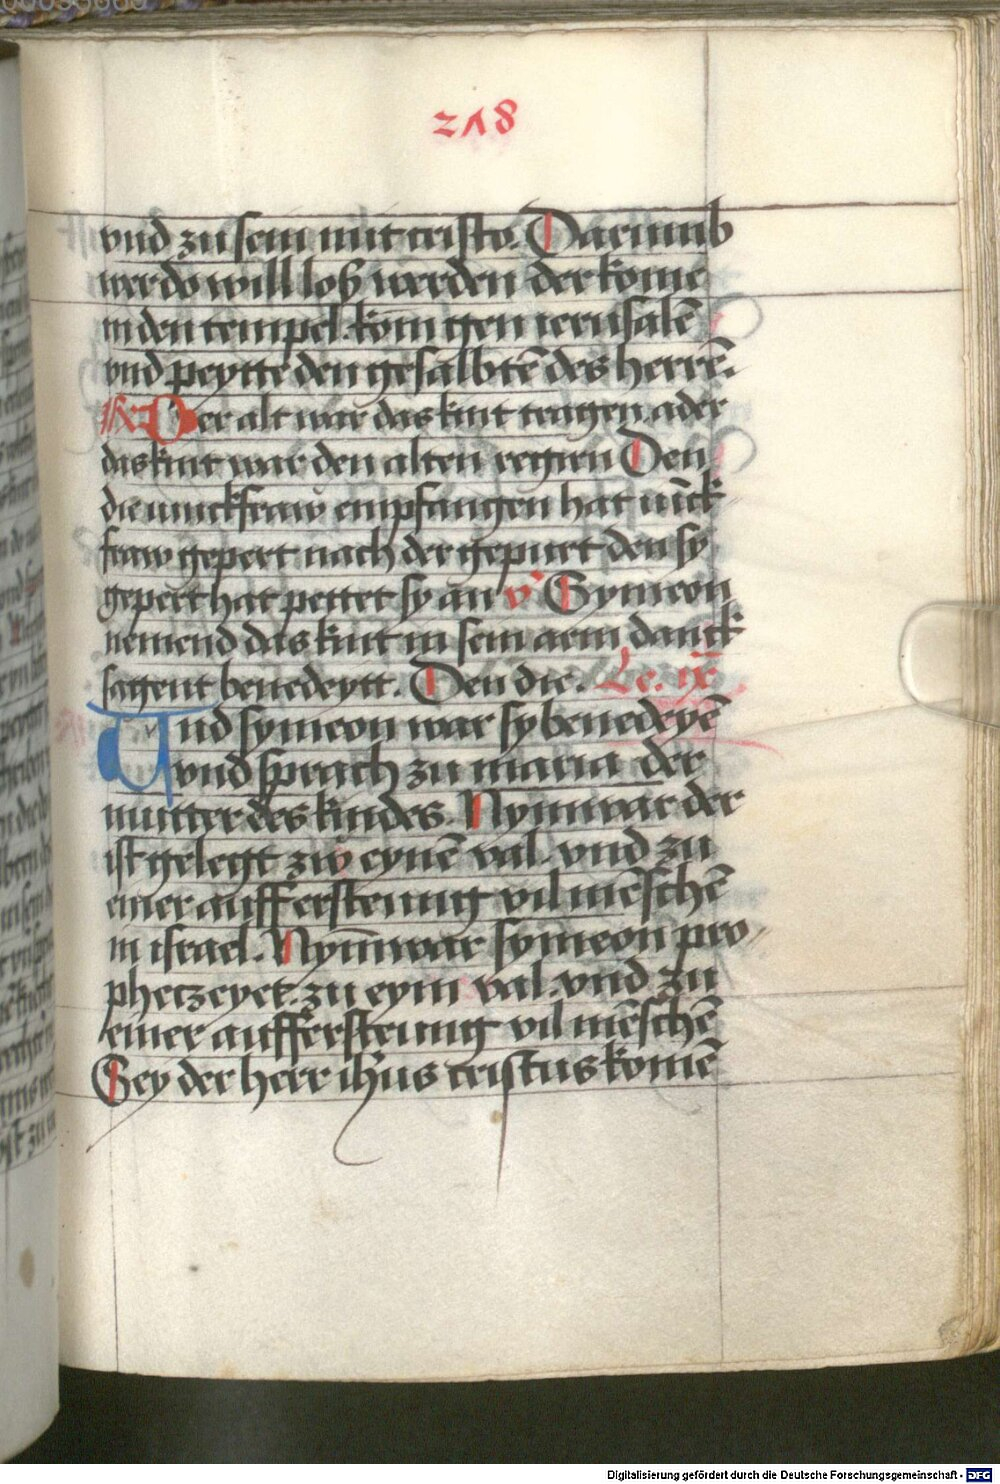 218
vnd zu sein mit cristo. Darumb
wer do will loß werden der kome
in den tempel. kom gen ierusalē
vnd peytte den gesalbtē des herrē.
R Der alt war das kint tragen ader
das kint war den alten regirn Den
die iunckfraw empfangen hat iūck
fraw gepert nach der gepurt den sy
gepert hat pettet sy an v̄ Symeon
nemend das kint in sein arm danck
sagent benedeytt. Den die. Le. ix
Vnd symeon war sy benedeyē
vnd sprach zu maria der
mutter des kindes. Nymwar der
ist gelegt zw eynē val. vnd zu
einer aufferstenng vil mēschē
in israel. Nym̄war symeon pro
phetzeyet. zu eym val. vnd zu
einer aufferstenng vil mēschē
Sey der herr ihūs cristus komē
Digitalisierung gefördert durch die Deutsche Forschungsgemeinschaft - DFG